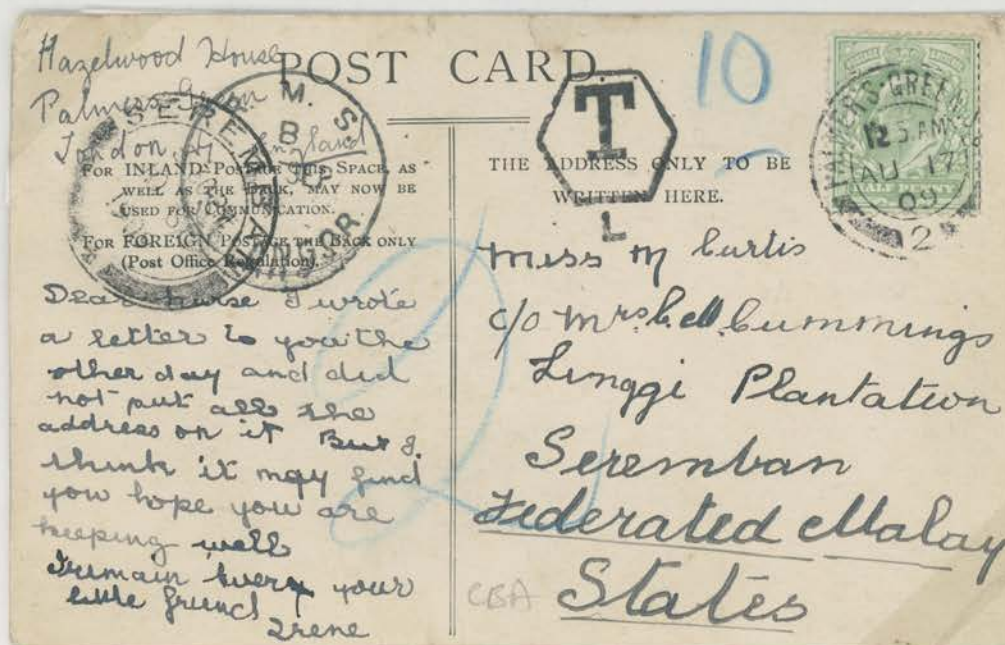 Hazelwood House
Palmers Green
London
England
POST CARD
FOR INLAND POSTAGE THIS SPACE, AS
WELL AS THE BACK, MAY NOW BE
USED FOR COMMUNICATION.
FOR FOREIGN POSTAGE THE BACK ONLY
(Post Office Regulation).
Dear nurse I wrote
a letter to you the
other day and did
not put all the
address on it But I
think it may find
you hope you are
keeping well
I remain your
little friend
Irene
SEREMBAN
M. S.
B
T
L
10
2
THE ADDRESS ONLY TO BE
WRITTEN HERE.
PALMERS-GREEN
12 5 AM
AU 17
09
2
HALF PENNY
Miss M Curtis
c/o Mrs Cummings
Linggi Plantation
Seremban
Federated Malay
States
CBA